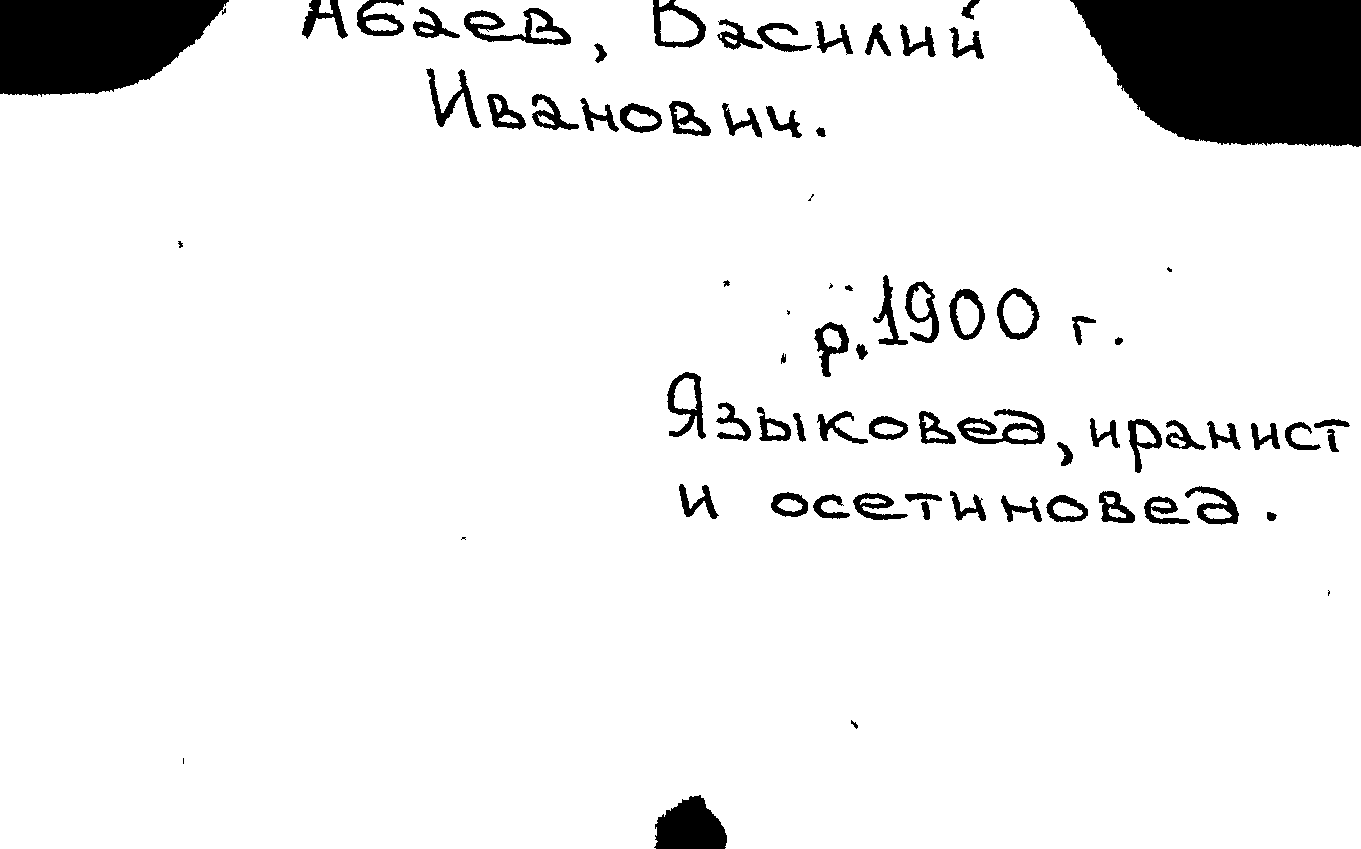 Абаев, Василий
Иванович.
р. 1900 г.
Языковед, иранист
и осетиновед.